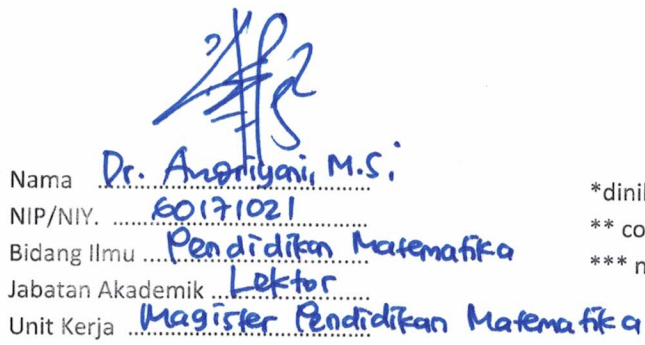 Nama Dr. Andriyani, M.Si
*dinil
NIP/NIY. 60171021
** co
Bidang Ilmu Pendidikan Matematika
*** n
Jabatan Akademik Lektor
Unit Kerja Magister Pendidikan Matematika